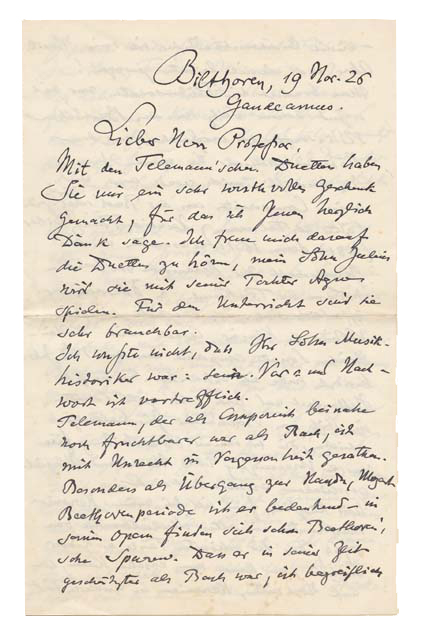 Bilthoven, 19 Nov. 26
Gaudeamus.
Lieber Herr Professor,
Mit den Telemann'schen Duetten haben
Sie mir ein sehr wertvolles Geschenk
gemacht, für das ich Ihnen herzlich
Dank sage. Ich freue mich darauf
die Duetten zu hören, mein Sohn Julius
wird sie mit seiner Tochter Agnes
spielen. Für den Unterricht sind sie
sehr brauchbar.
Ich wußte nicht, daß Ihr Sohn Musik-
historiker war: sein Vor- und Nach-
wort ist vortrefflich.
Telemann, der als Componist beinahe
noch fruchtbarer war als Bach, ist
mit Unrecht in Vergessenheit geraten.
Besonders als Übergang zur Haydn, Mozart
Beethovenperiode ist er bedeutend – in
seinen Opern finden sich schon Beethoven'
sche Spuren. Dass er in seiner Zeit
geschätzter als Bach war, ist begreiflich